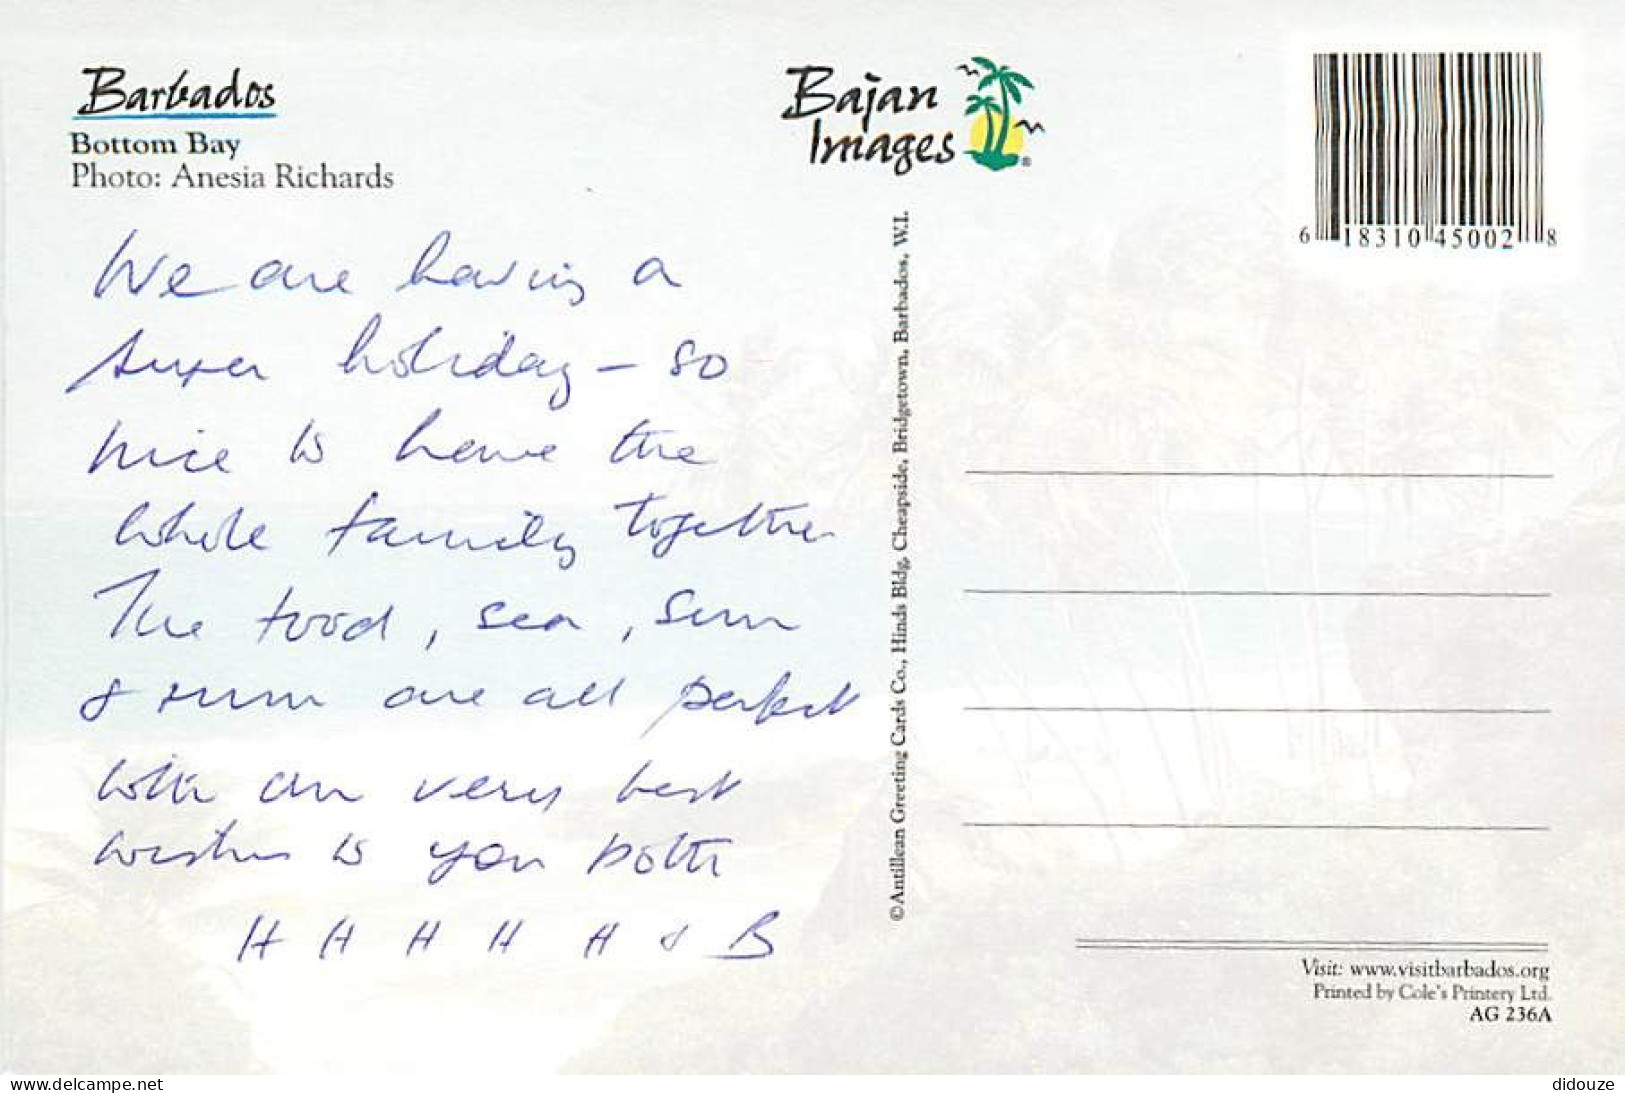 Barbados
Bottom Bay
Photo: Anesia Richards
We are having a
super holiday – so
nice to have the
whole family together
The food, sea, sun
& rum are all perfect
With our very best
wishes to you both
H H H H H & B
Bajan
Images
®
©Antillean Greeting Cards Co., Hinds Bldg, Cheapside, Bridgetown, Barbados, W.I.
6 18310 45002 8
Visit: www.visitbarbados.org
Printed by Cole's Printery Ltd.
AG 236A
www.delcampe.net
didouze